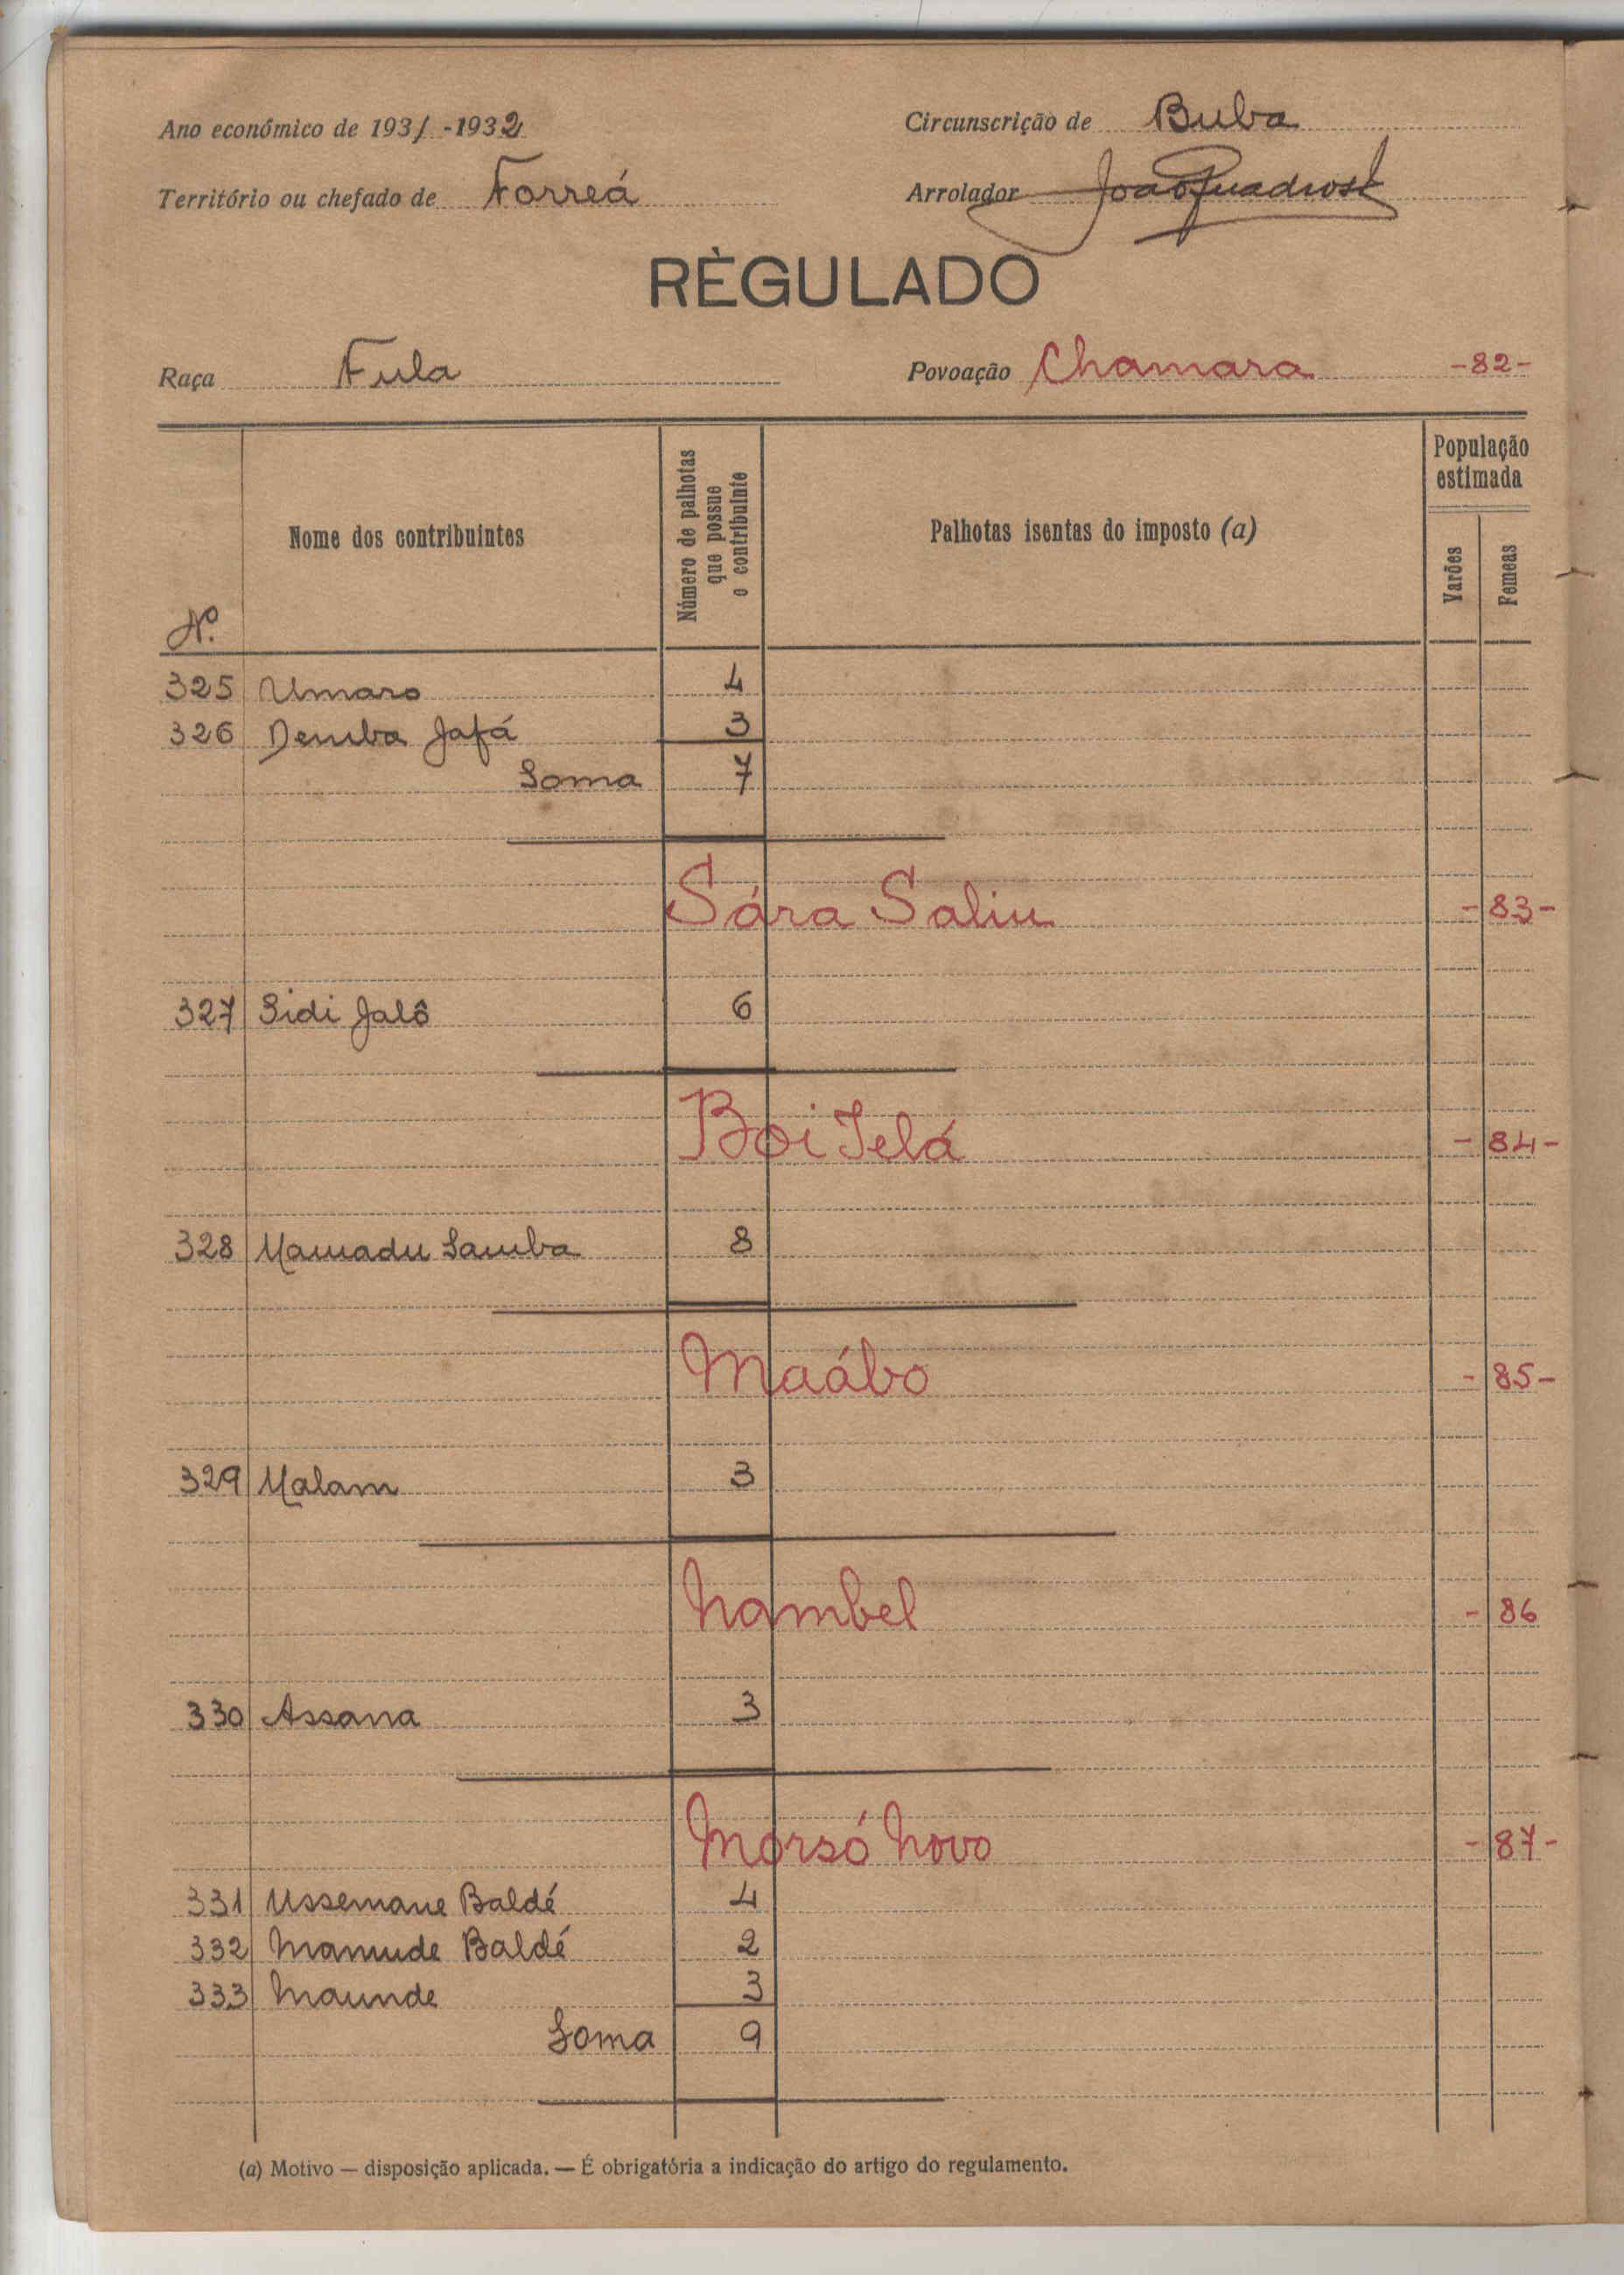 Ano económico de 1931-1932
Circunscrição de Buba
Território ou chefado de Forreá
Arrolador
RÈGULADO
Raça Fula
Povoação Chamara -82-
Nº
Nome dos contribuintes
Número de palhotas
que possue
o contribuinte
Palhotas isentas do imposto (a)
População
estimada
Varões
Femeas
325 Umaro 4
326 Demba Jafá 3
Soma 7
Sára Saliu -83-
327 Sidi Jalô 6
Boi Telá -84-
328 Mamadu Samba 8
Maábo -85-
329 Malam 3
Nambel - 86
330 Assana 3
Morsó Novo -87-
331 Ussemane Baldé 4
332 Mamude Baldé 2
333 Maunde 3
Soma 9
(a) Motivo — disposição aplicada. — É obrigatória a indicação do artigo do regulamento.